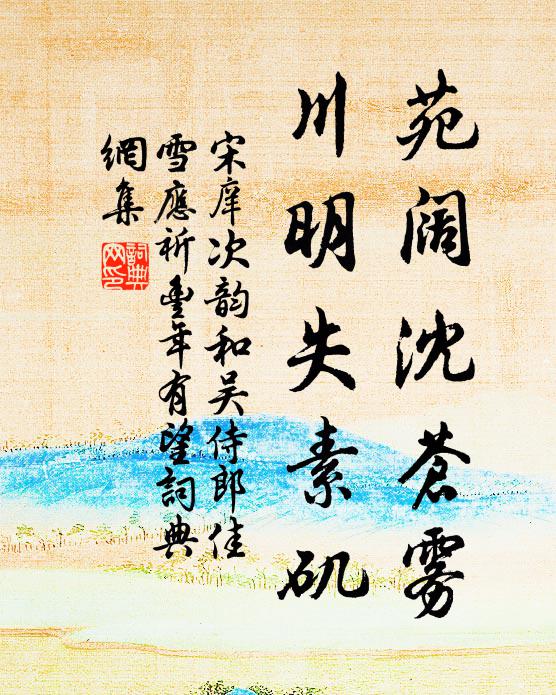 苑阔沈苍雾
川明失素矶
宋庠次韵和吴侍郎佳
雪應祈豊年有望詞典
網集
詞典
网印